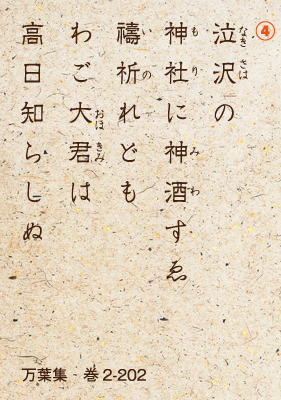 ④
泣沢の
神社に神酒すゑ
禱祈れども
わご大君は
高日知らしぬ
なき さは
もり みわ
いの
おほ きみ
万葉集‐巻2-202